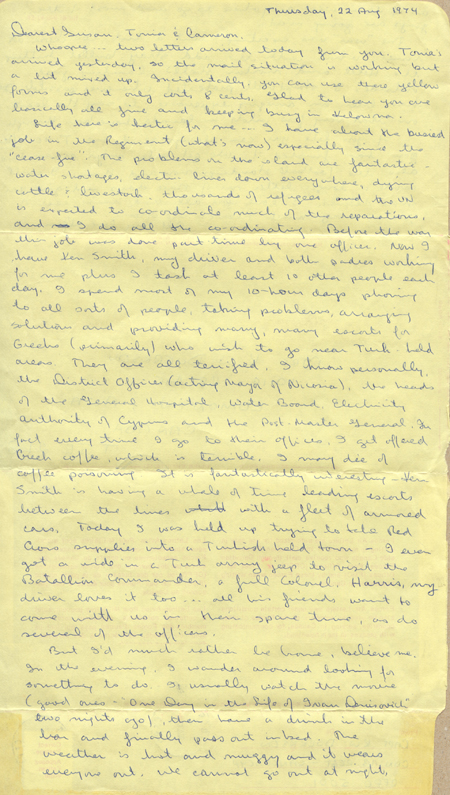 Thursday, 22 Aug 1974
Dearest Susan, Toma & Cameron.
Whoopee... two letters arrived today from you. Toma's
arrived yesterday, so the mail situation is working but
a bit mixed up. Incidentally, you can use these yellow
forms and it only costs 8 cents. Glad to hear you are
basically all fine and keeping busy in Kelowna.
Life here is hectic for me... I have about the busiest
job in the Regiment (what's new) especially since the
"cease-fire". The problems on the island are fantastic -
water shortages, electric lines down everywhere, dying
cattle & livestock, thousands of refugees and the UN
is expected to co-ordinate much of the reparations,
and I do all the co-ordinating. Before the war
this job was done part time by one officer. Now I
have Ken Smith, my driver and both sadies working
for me plus I task at least 10 other people each
day. I spend most of my 10-hour days phoning
to all sorts of people, taking problems, arranging
solutions and providing many, many escorts for
Greeks (primarily) who wish to go near Turk-held
areas. They are all terrified. I know personally,
the District Officer (acting Mayor of Nicosia), the heads
of the General Hospital, Water Board, Electricity
Authority of Cyprus and the Post-Master General. In
fact every time I go to their offices, I get offered
Greek coffee, which is terrible. I may die of
coffee poisoning. It is fantastically interesting - Ken
Smith is having a whale of time leading escorts
between the lines with a fleet of armored
cars. Today I was held up trying to take Red
Cross supplies into a Turkish held town - I even
got a ride in a Turk army jeep to visit the
Batallion Commander, a full Colonel. Harris, my
driver loves it too... all his friends want to
come with us in their spare time, as do
several of the officers.
But I'd much rather be home, believe me.
In the evening, I wander around looking for
something to do. I usually watch the movie
(good ones - "One Day in the Life of Ivan Denisovich"
two nights ago), then have a drink in the
bar and finally pass out in bed. The
weather is hot and muggy and it wears
everyone out. We cannot go out at night,